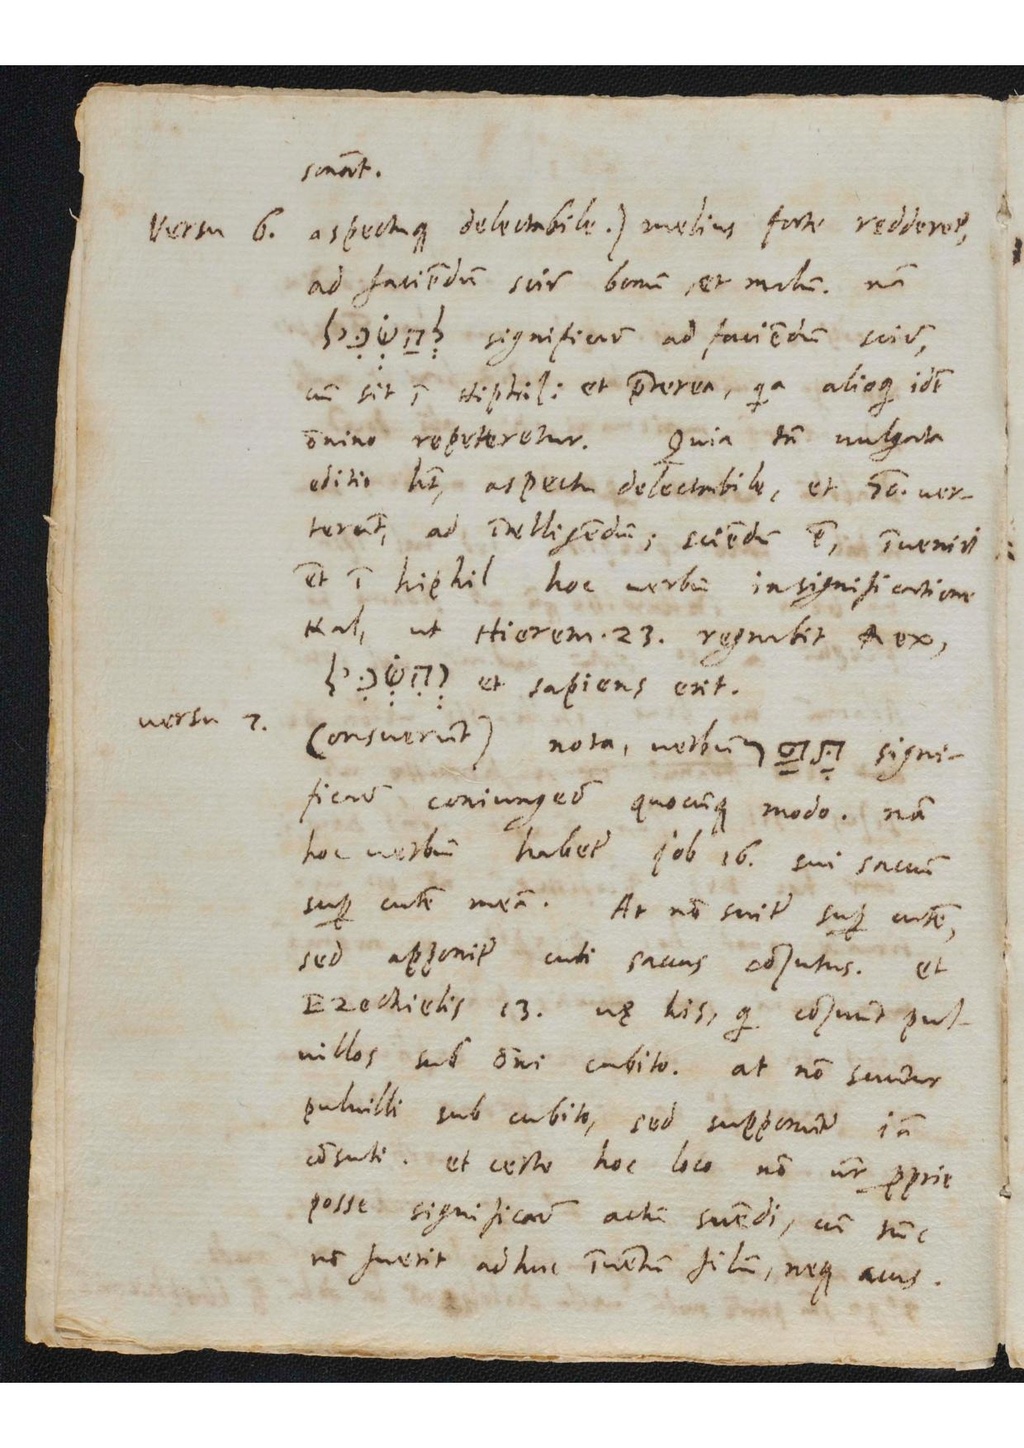 sonāt.
Versu 6. aspectuq́ delectabile.) melius forte redderet̃,
ad faciēdū scir̃ bonū, et malū. nā
לְהַשְׂכִּיל significar̃ ad faciēdū scir̃,
cū sit ī Hiphil: et p̄terea, qa alioq idē
ōnino repeteretur. Quia tn̄ uulgata
editio ht̄, aspectu delectabile, et 70. uer-
terūt, ad ītelligēdū; sciēdū ē, īueniri
ēt ī hiphil hoc uerbū in significatione
Kal, ut Hierem. 23. regnabit Rex,
וְהִשְׂכִּיל et sapiens erit.
versu 7. Consuerūt) nota, uerbū תָּפַר signi-
ficar̃ coniunger̃ quocūq́ modo. nā
hoc uerbū habet̃ Job 16. sui saccū
sup cutē meā. At nō suit̃ sup cutē,
sed apponit̃ cuti saccus cōsutus. et
Ezechielis 13. uę his, q cōsuūt pul-
uillos sub ōni cubito. at nō suūtur
puluilli sub cubito, sed supponūt̃ iā
cōsuti. et certe hoc loco nō ur̄ pprie
posse significar̃ actū suēdi, cū tūc
nō fuerit adhuc īuētū filū, neq́ acus.